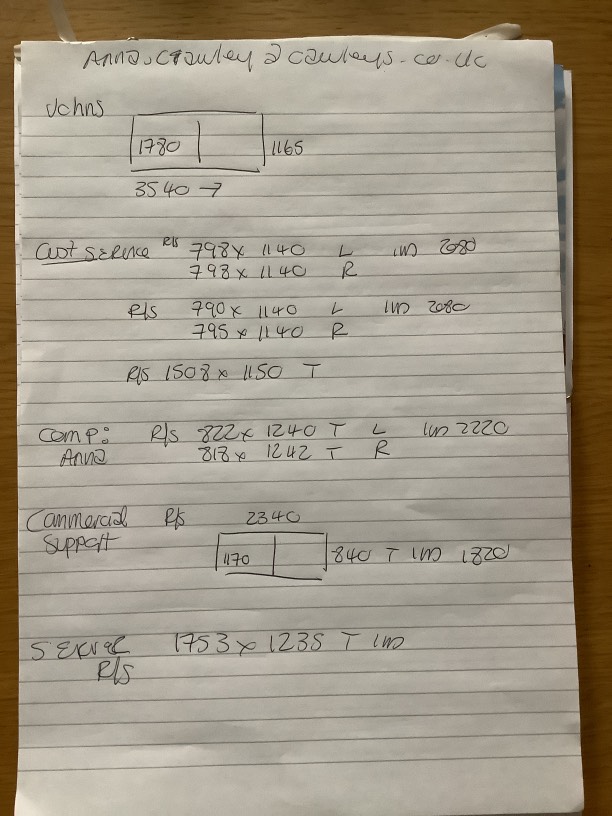 Anna.crawley@cawleys.co.uk
Johns
1780 1165
3540 →
Cust SERVICE R/S 798 x 1140 L IM 2080
798 x 1140 R
R/S 790 x 1140 L IM 2080
795 x 1140 R
R/S 1508 x 1150 T
Comp: R/S 822 x 1240 T L IM 2220
Anna 818 x 1242 T R
Commercial R/S 2340
Support 1170 840 T IM 1820
1753 x 1235 T IM
R/S